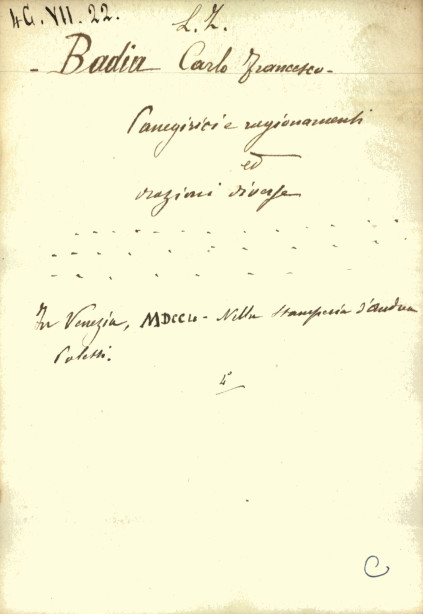 4G.VII.22.
L.Z.
- Badia Carlo Francesco -
Panegirici e ragionamenti
ed
orazioni diverse
In Venezia, MDCCL - Nella Stamperia d'Andrea
Poletti.
4°
C